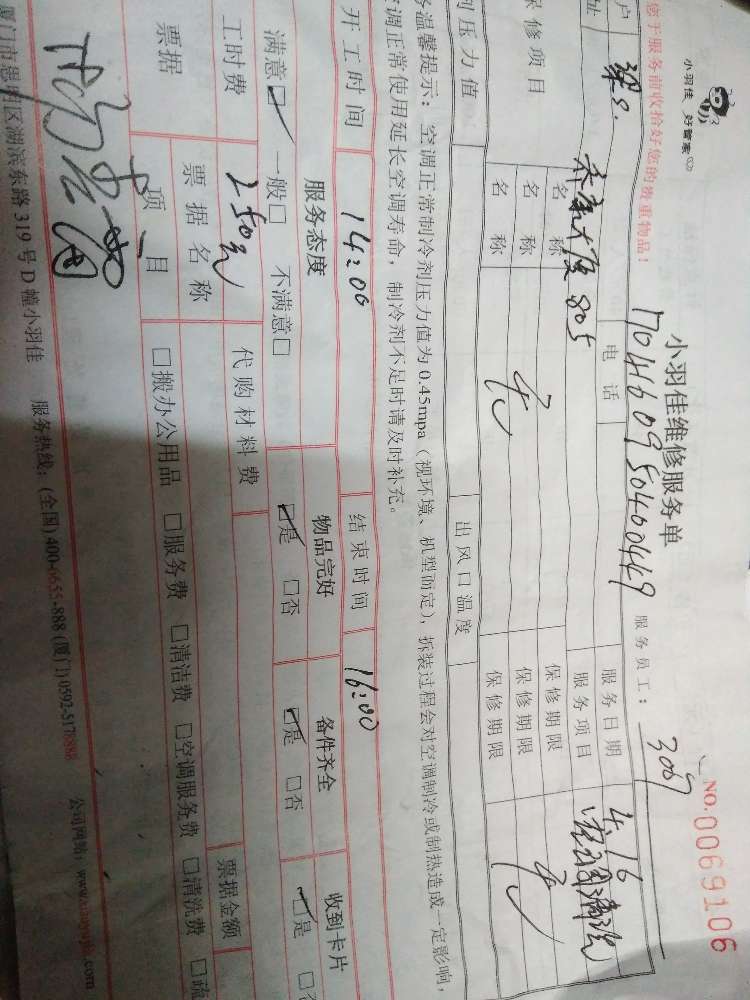 小羽佳 好管家
NO.0069106
小羽佳维修服务单
您于服务前收拾好您的贵重物品!
1704160950400449 服务员工: 3087
户 梁s. 电话 服务日期 4.16
址 805 服务项目 清洗
保修项目 名称 无 保修期限 无
名称 保修期限
名称 保修期限
剂压力值 出风口温度
温馨提示: 空调正常制冷剂压力值为0.45mpa (视环境、机型而定), 拆装过程会对空调制冷或制热造成一定影响,
调正常使用延长空调寿命, 制冷剂不足时请及时补充。
开工时间 14:00 结束时间 16:00
服务态度 物品完好 备件齐全 收到卡片
满意☑ 一般□ 不满意□ ☑是 □否 ☑是 □否 ☑是 □否
工时费 250元 代购材料费
票据 票据名称 票据金额
项目 □搬办公用品 □服务费 □清洁费 □空调服务费 □清洗费 □疏
厦门市思明区湖滨东路319号D幢小羽佳 服务热线: (全国) 400-1655-888 (厦门) 0592-5178888 公司网站: